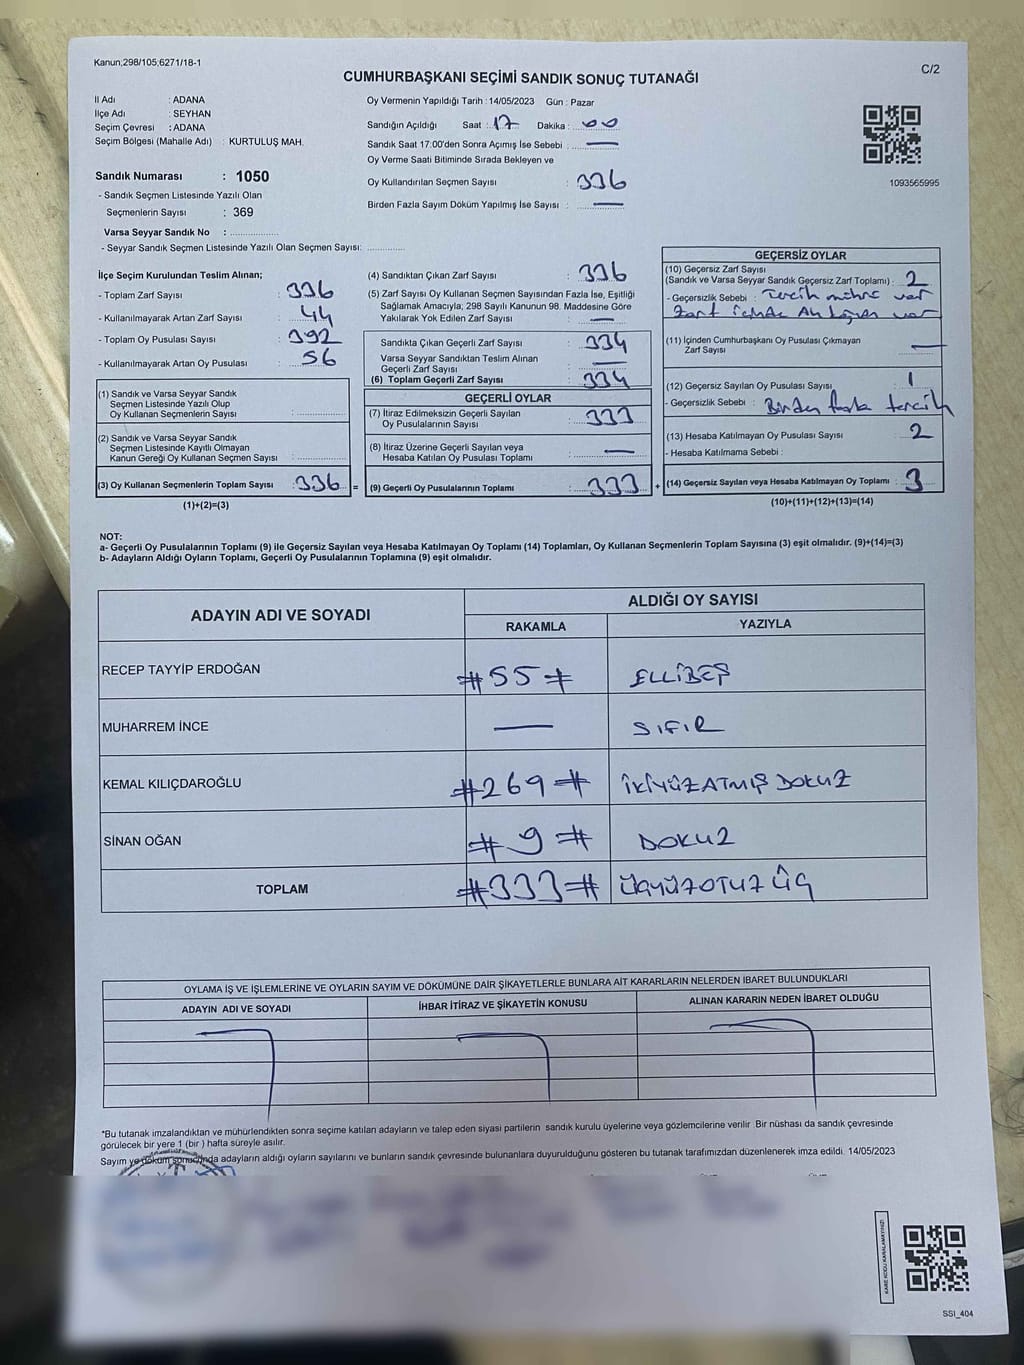 Kanun;298/105;6271/18-1
C/2
CUMHURBAŞKANI SEÇİMİ SANDIK SONUÇ TUTANAĞI
İl Adı : ADANA
İlçe Adı : SEYHAN
Seçim Çevresi : ADANA
Seçim Bölgesi (Mahalle Adı) : KURTULUŞ MAH.
Sandık Numarası : 1050
- Sandık Seçmen Listesinde Yazılı Olan
Seçmenlerin Sayısı : 369
Varsa Seyyar Sandık No : ..................
- Seyyar Sandık Seçmen Listesinde Yazılı Olan Seçmen Sayısı: ..............
Oy Vermenin Yapıldığı Tarih : 14/05/2023 Gün : Pazar
Sandığın Açıldığı Saat : 17 Dakika : 00
Sandık Saat 17:00'den Sonra Açımış İse Sebebi : —
Oy Verme Saati Bitiminde Sırada Bekleyen ve
Oy Kullandırılan Seçmen Sayısı : 336
Birden Fazla Sayım Döküm Yapılmış İse Sayısı : —
1093565995
İlçe Seçim Kurulundan Teslim Alınan;
- Toplam Zarf Sayısı : 336
- Kullanılmayarak Artan Zarf Sayısı : 44
- Toplam Oy Pusulası Sayısı : 392
- Kullanılmayarak Artan Oy Pusulası : 56
(1) Sandık ve Varsa Seyyar Sandık
Seçmen Listesinde Yazılı Olup
Oy Kullanan Seçmenlerin Sayısı : ..............
(2) Sandık ve Varsa Seyyar Sandık
Seçmen Listesinde Kayıtlı Olmayan
Kanun Gereği Oy Kullanan Seçmen Sayısı : ..............
(3) Oy Kullanan Seçmenlerin Toplam Sayısı : 336 =
(1)+(2)=(3)
(4) Sandıktan Çıkan Zarf Sayısı : 336
(5) Zarf Sayısı Oy Kullanan Seçmen Sayısından Fazla İse, Eşitliği
Sağlamak Amacıyla; 298 Sayılı Kanunun 98. Maddesine Göre
Yakılarak Yok Edilen Zarf Sayısı : —
Sandıkta Çıkan Geçerli Zarf Sayısı : 334
Varsa Seyyar Sandıktan Teslim Alınan
Geçerli Zarf Sayısı : —
(6) Toplam Geçerli Zarf Sayısı : 334
GEÇERLİ OYLAR
(7) İtiraz Edilmeksizin Geçerli Sayılan
Oy Pusulalarının Sayısı : 333
(8) İtiraz Üzerine Geçerli Sayılan veya
Hesaba Katılan Oy Pusulası Toplamı : —
(9) Geçerli Oy Pusulalarının Toplamı : 333 +
GEÇERSİZ OYLAR
(10) Geçersiz Zarf Sayısı
(Sandık ve Varsa Seyyar Sandık Geçersiz Zarf Toplamı) : 2
- Geçersizlik Sebebi : Tercih mührü var
Zarf içinde
var
(11) İçinden Cumhurbaşkanı Oy Pusulası Çıkmayan
Zarf Sayısı : —
(12) Geçersiz Sayılan Oy Pusulası Sayısı : 1
- Geçersizlik Sebebi : Birden fazla tercih
(13) Hesaba Katılmayan Oy Pusulası Sayısı : 2
- Hesaba Katılmama Sebebi :
(14) Geçersiz Sayılan veya Hesaba Katılmayan Oy Toplamı : 3
(10)+(11)+(12)+(13)=(14)
NOT:
a- Geçerli Oy Pusulalarının Toplamı (9) ile Geçersiz Sayılan veya Hesaba Katılmayan Oy Toplamı (14) Toplamları, Oy Kullanan Seçmenlerin Toplam Sayısına (3) eşit olmalıdır. (9)+(14)=(3)
b- Adayların Aldığı Oyların Toplamı, Geçerli Oy Pusulalarının Toplamına (9) eşit olmalıdır.
ADAYIN ADI VE SOYADI
ALDIĞI OY SAYISI
RAKAMLA YAZIYLA
RECEP TAYYİP ERDOĞAN #55# ELLİBEŞ
MUHARREM İNCE — SIFIR
KEMAL KILIÇDAROĞLU #269# İKİYÜZATMIŞ DOKUZ
SİNAN OĞAN #9# DOKUZ
TOPLAM #333# ÜÇYÜZOTUZ ÜÇ
OYLAMA İŞ VE İŞLEMLERİNE VE OYLARIN SAYIM VE DÖKÜMÜNE DAİR ŞİKAYETLERLE BUNLARA AİT KARARLARIN NELERDEN İBARET BULUNDUKLARI
ADAYIN ADI VE SOYADI İHBAR İTİRAZ VE ŞİKAYETİN KONUSU ALINAN KARARIN NEDEN İBARET OLDUĞU
*Bu tutanak imzalandıktan ve mühürlendikten sonra seçime katılan adayların ve talep eden siyasi partilerin sandık kurulu üyelerine veya gözlemcilerine verilir. Bir nüshası da sandık çevresinde
görülecek bir yere 1 (bir ) hafta süreyle asılır.
Sayım ve döküm sonucunda adayların aldığı oyların sayılarını ve bunların sandık çevresinde bulunanlara duyurulduğunu gösteren bu tutanak tarafımızdan düzenlenerek imza edildi. 14/05/2023
KARE KODU KARALAMAYINIZ!
SSI_404